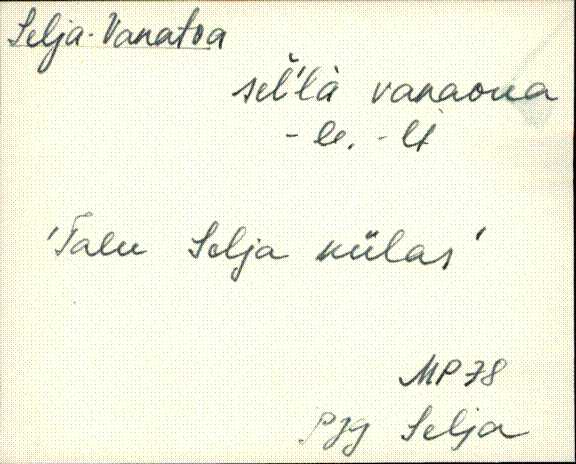 Selja-Vanatoa
sel̆'l̀à vanaoua
-le, -lt
'Talu Selja külas'
MP 78
PJg Selja